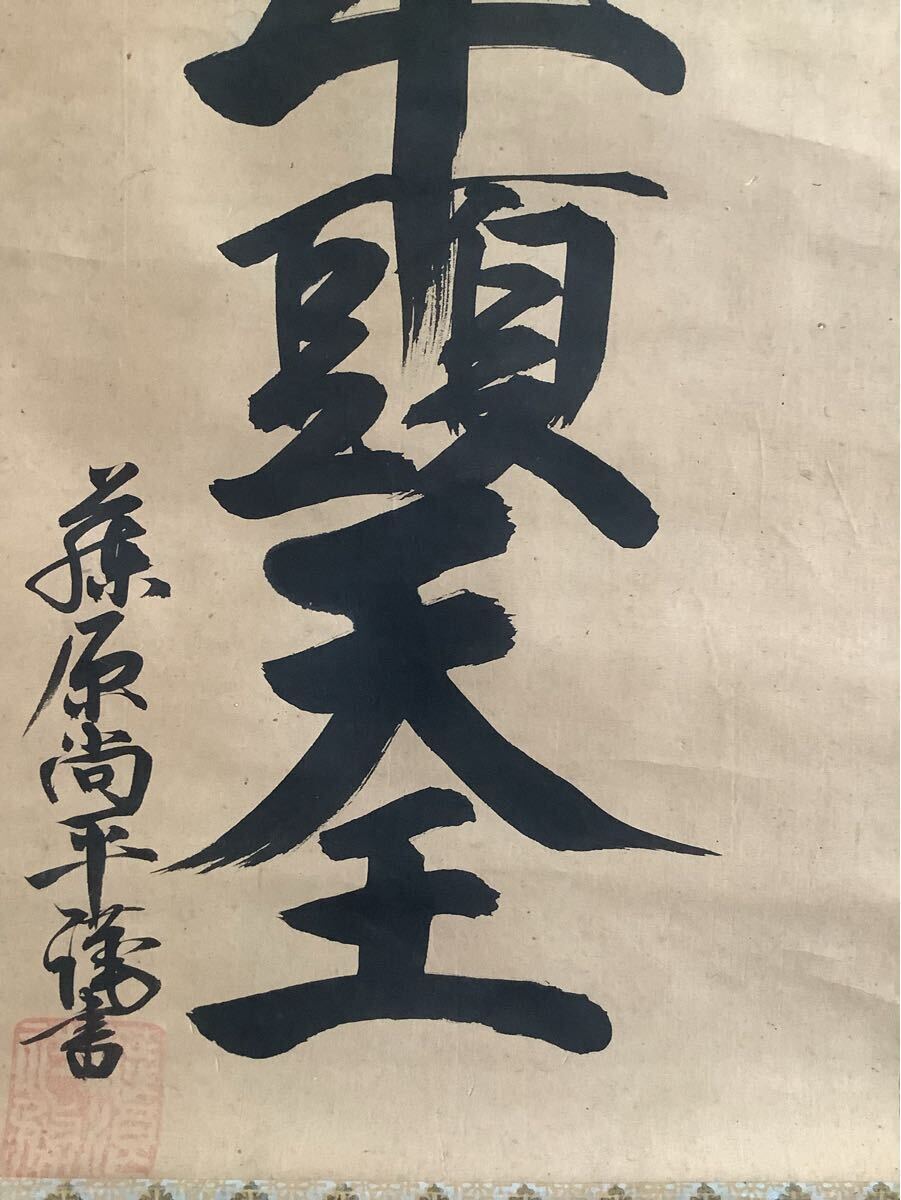 牛頭天王
藤原尚平謹書